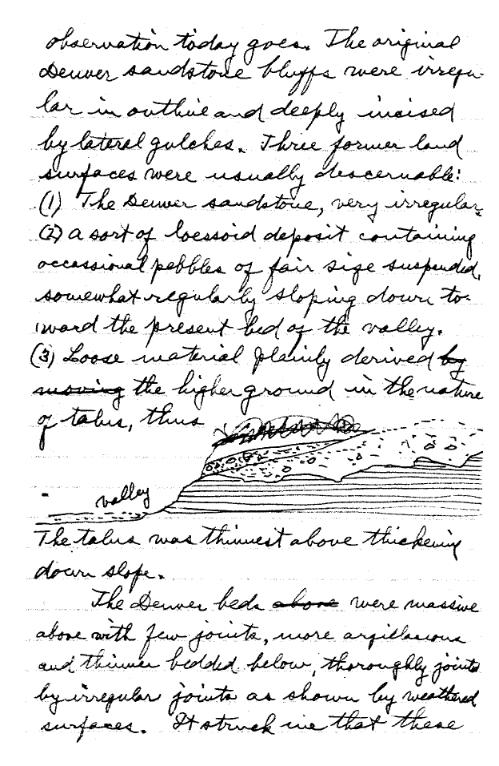 observation today goes. The original
Denver sandstone bluffs were irregu-
lar in outline and deeply incised
by lateral gulches. Three former land
surfaces were usually descernable:
(1) The Denver sandstone, very irregular.
(2) a sort of loessoid deposit containing
occassional pebbles of fair size suspended,
somewhat regularly sloping down to-
ward the present bed of the valley.
(3) Loose material plainly derived by
moving the higher ground in the nature
of talus, thus
valley
The talus was thinnest above thickening
down slope.
The Denver beds above were massive
above with few joints, more argillaceous
and thinner bedded below, thoroughly jointed
by irregular joints as shown by weathered
surfaces. It struck me that these